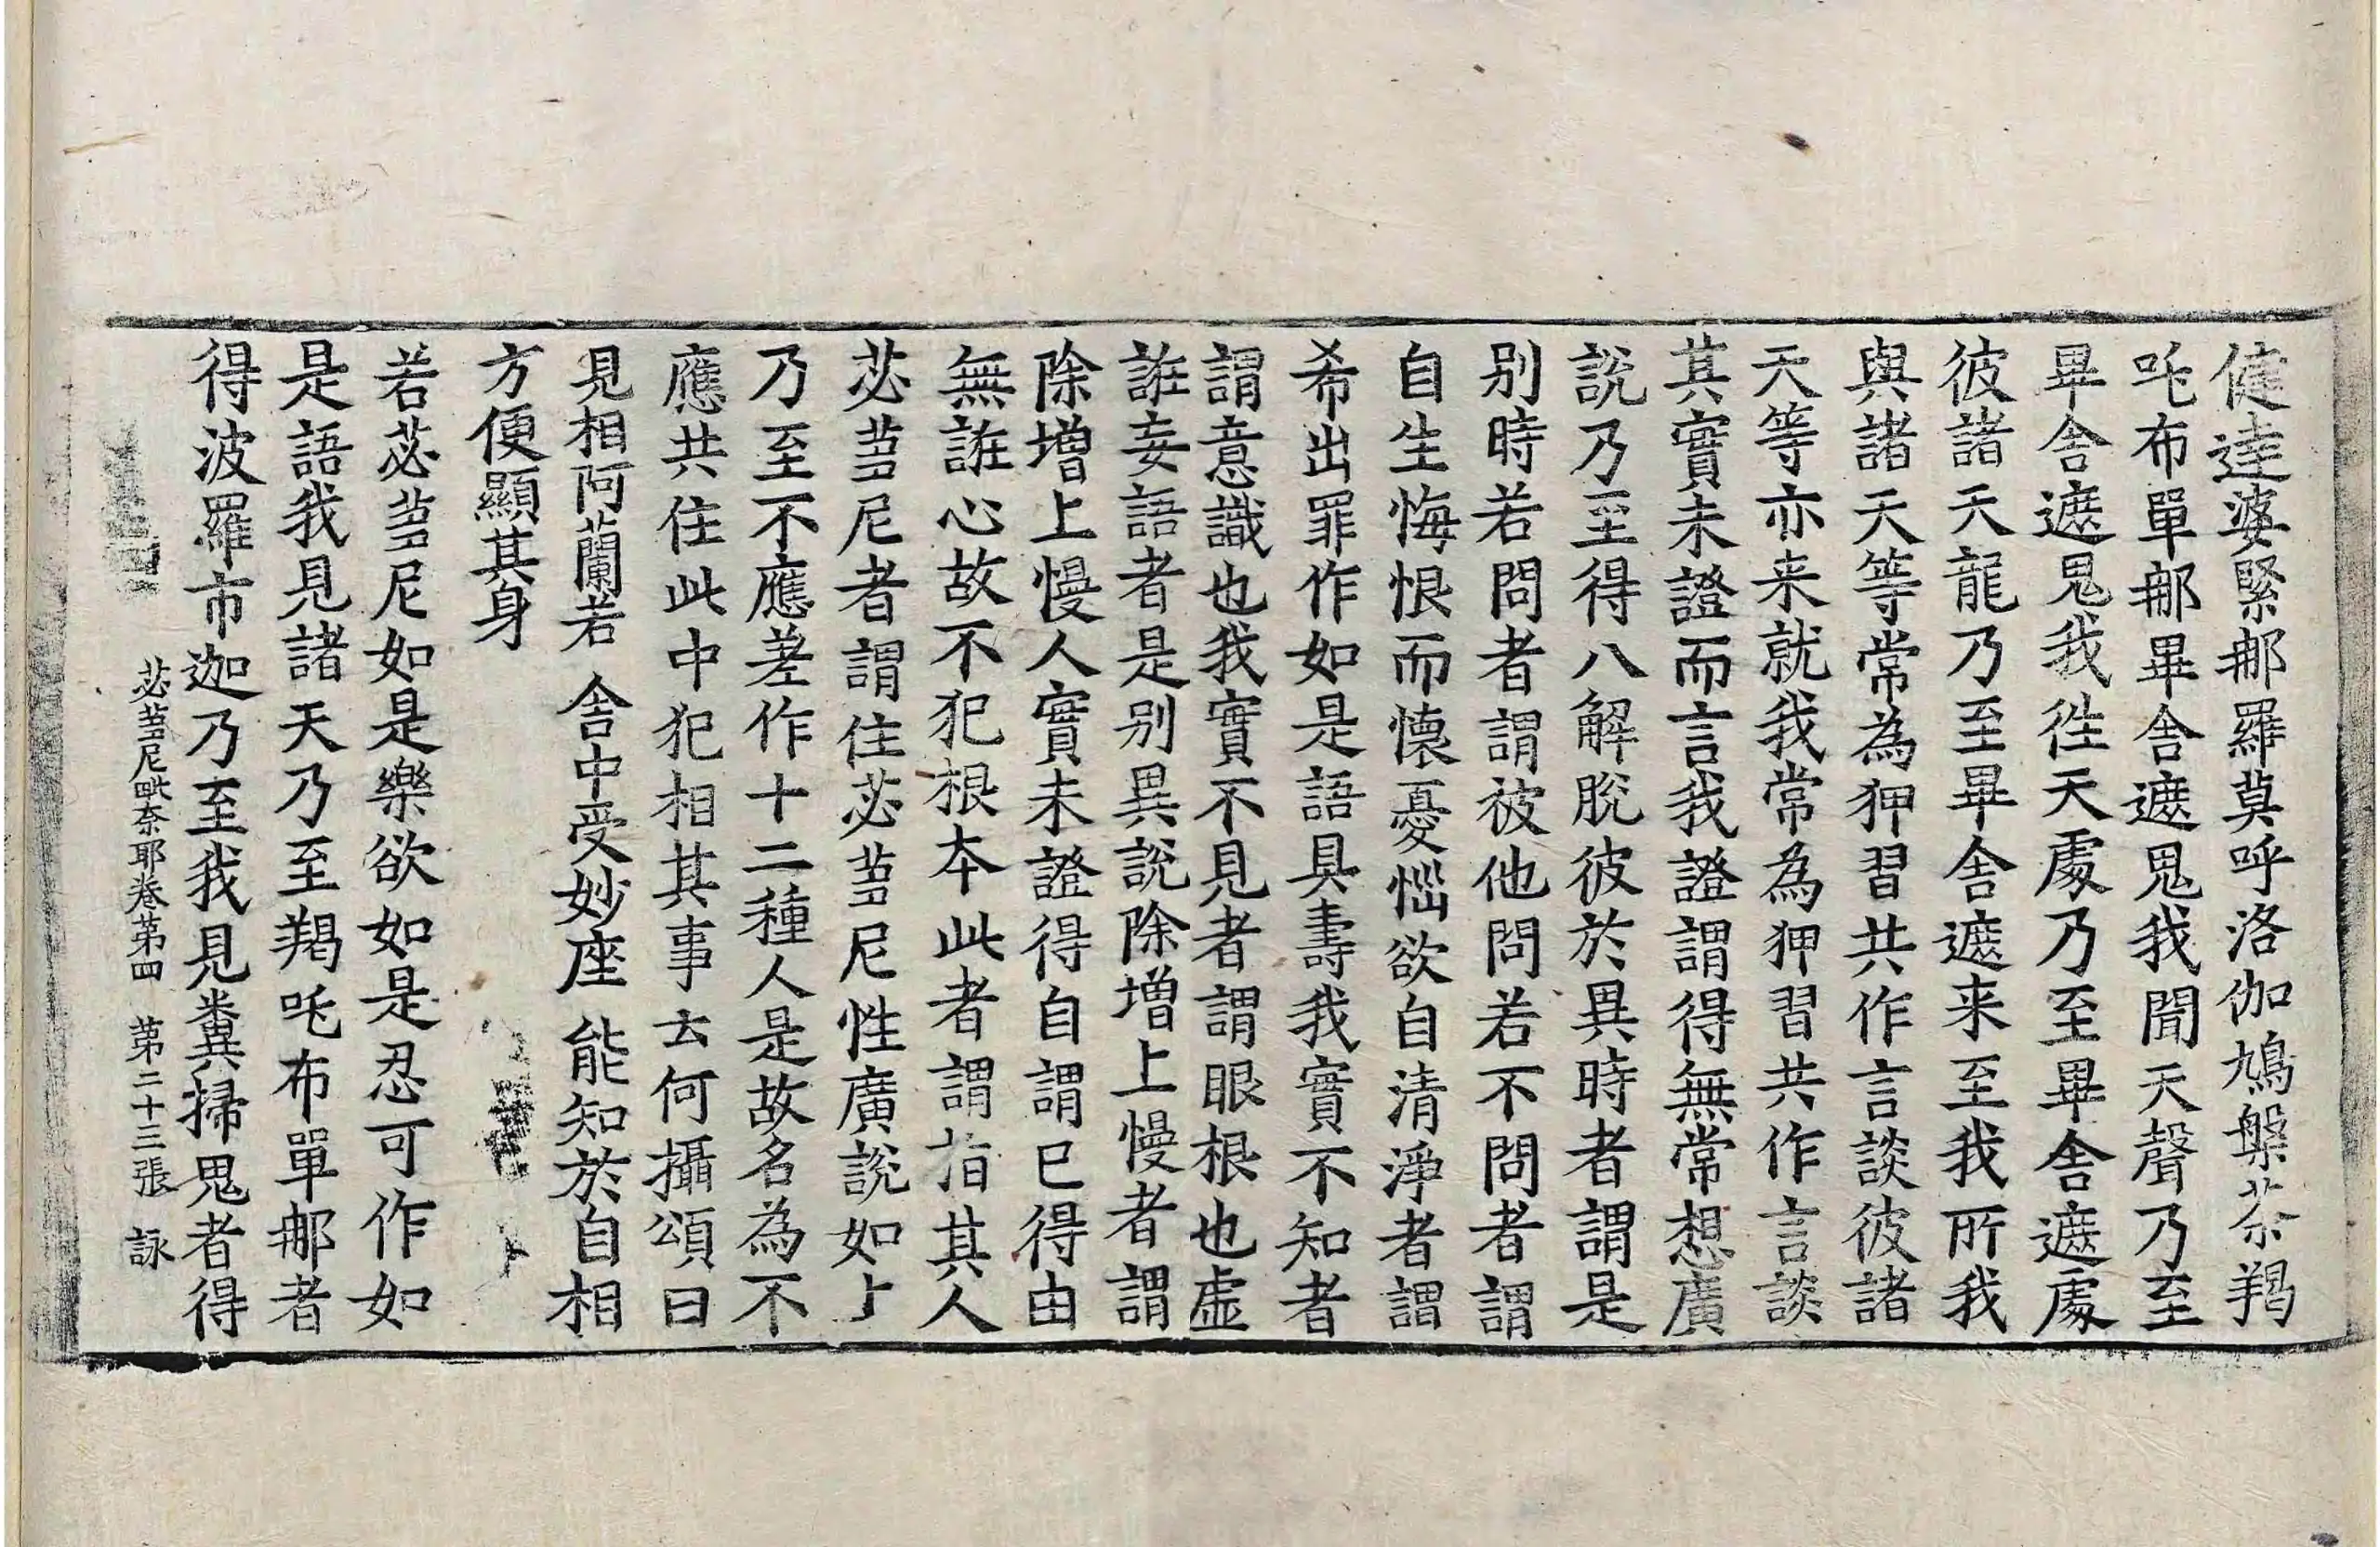 健達婆緊那羅莫呼洛伽鳩槃茶羯
吒布單那畢舍遮鬼我聞天聲乃至
畢舍遮鬼我往天處乃至畢舍遮處
彼諸天龍乃至畢舍遮来至我所我
與諸天等常為狎習共作言談彼諸
天等亦来就我常為狎習共作言談
其實未證而言我證謂得無常想廣
說乃至得八解脫彼於異時者謂是
別時若問者謂彼他問若不問者謂
自生悔恨而懷憂惱欲自清淨者謂
希出罪作如是語具壽我實不知者
謂意識也我實不見者謂眼根也虛
誑妄語者是別異說除增上慢者謂
除增上慢人實未證得自謂已得由
無誑心故不犯根本此者謂指其人
苾芻尼者謂住苾芻尼性廣說如上
乃至不應差作十二種人是故名為不
應共住此中犯相其事云何攝頌曰
見相阿蘭若 舍中受妙座 能知於自相
方便顯其身
若苾芻尼如是樂欲如是忍可作如
是語我見諸天乃至羯吒布單那者
得波羅市迦乃至我見糞掃鬼者得
苾芻尼毗奈耶卷第四 第二十三張 詠